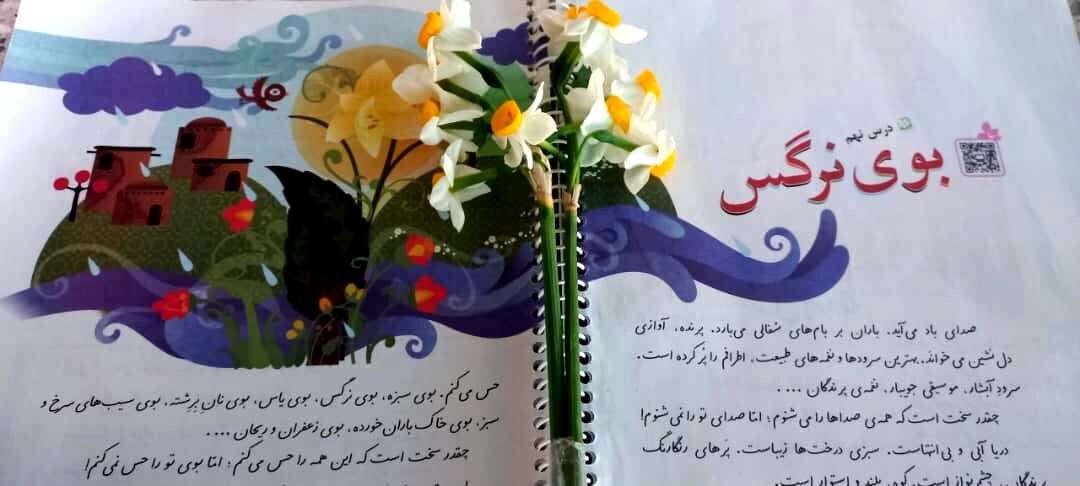 درس نهم
بوی نرگس
صدای باد می‌آید. باران بر بام‌های سفالی می‌بارد. پرنده، آوازی
دل نشین می‌خواند. بهترین سرودها و نغمه‌های طبیعت، اطرافم را پُر کرده است.
سرودِ آبشار، موسیقیِ جویبار، نغمه‌ی پرندگان ....
چقدر سخت است که همه‌ی صداها را می شنوم؛ امّا صدای تو را نمی شنوم!
دریا آبی و بی‌انتهاست. سبزی درخت‌ها زیباست. پَرهای رنگارنگ
پرندگان، چشم‌نواز است. کوه، بلند و استوار است.
حس می‌کنم. بوی سبزه، بوی نرگس، بوی یاس، بوی نان بِرشته، بوی سیب‌های سرخ و
سبز، بوی خاک باران خورده، بوی زعفران و ریحان ....
چقدر سخت است که این همه را حس می‌کنم؛ امّا بوی تو را حس نمی‌کنم!